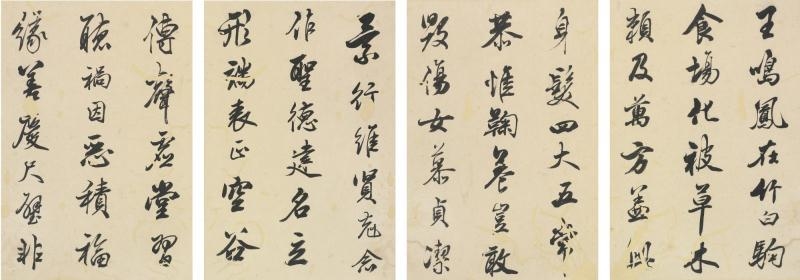 王鳴鳳在竹白駒
食場化被草木
賴及萬方蓋此
身髮四大五常
恭惟鞠養豈敢
毀傷女慕貞潔
景行維賢克念
作聖德建名立
形端表正空谷
傳聲虛堂習
聽禍因惡積福
緣善慶尺璧非